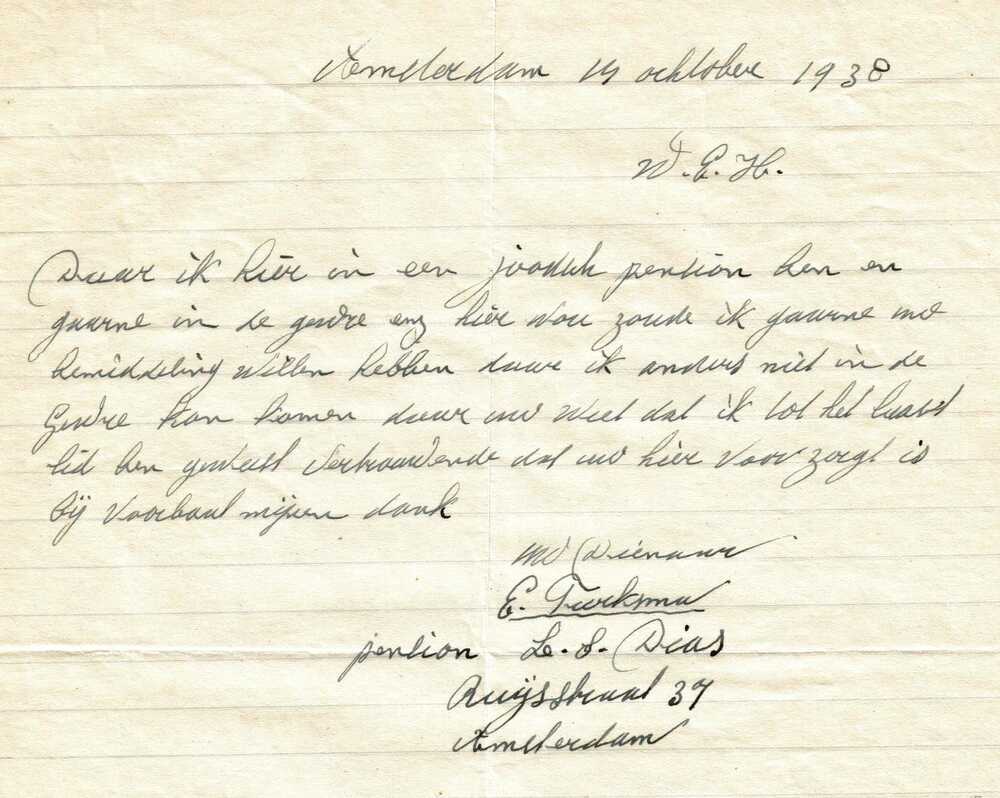 Amsterdam 19 ochtober 1938
W. E. H.
Daar ik hier in een joodsch pention ben en
gaarne in de gewre eng hier wou zoude ik gaarne uw
bemiddeling willen hebben daar ik anders niet in de
Gewre kan komen daar uw weet dat ik tot het laast
lid ben geweest vertrouwende dat uw hier voor zorgt is
bij voorbaat mijnen dank
uw Dienaar
E. Turksma
pention L. S. Dias
Ruijsstraat 37
Amsterdam